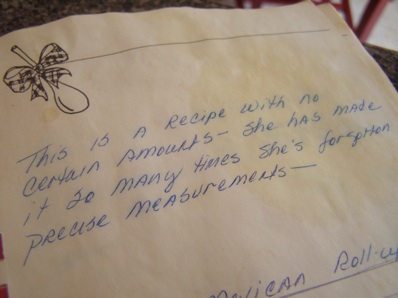 This is a Recipe with no
certain Amounts- She has made
it so many times She's forgotten
precise measurements-
Roll-up